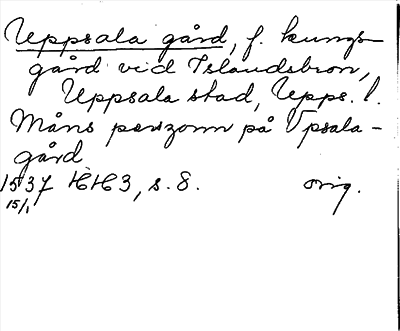 Uppsala gård, f. kungs-
gård vid Islandsbron,
Uppsala stad, Upps. l.
Måns perszonn på Vpsala-
gård
1537 HH3, s. 8. orig.
15/1